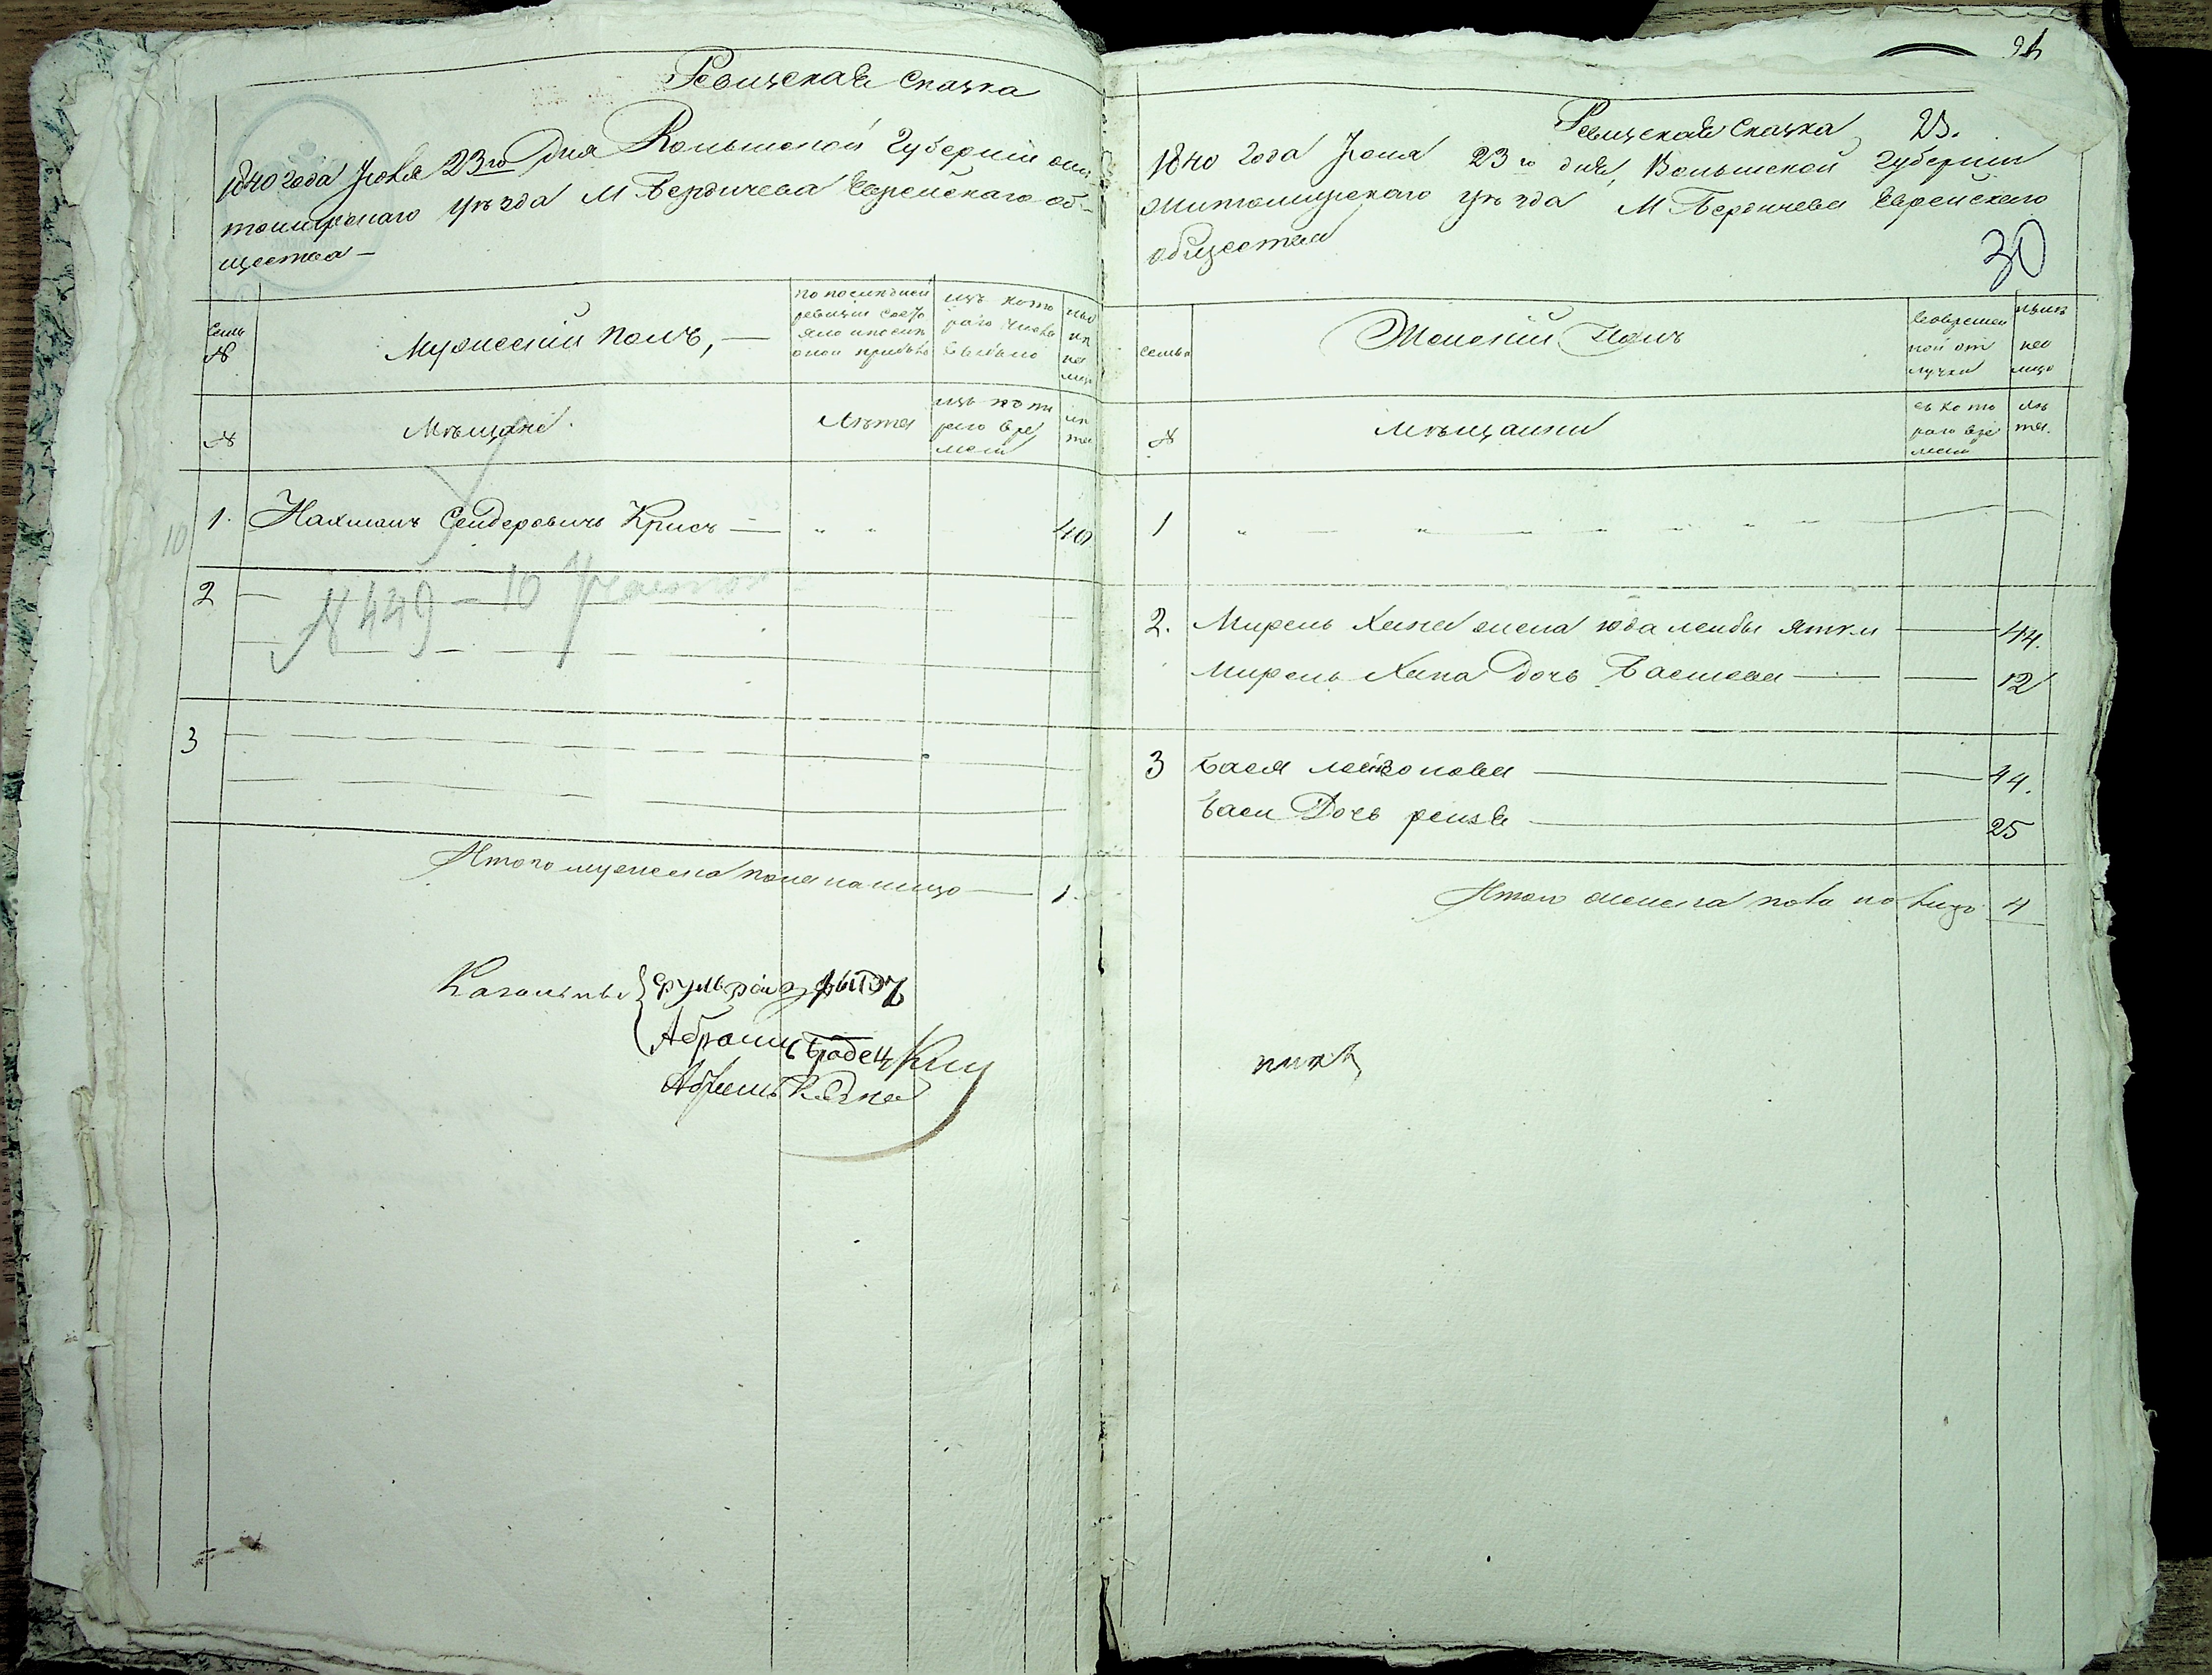 Ревизская сказка
1840 года Июня 23го дня Волынской Губернии жи-
томирскаго уезда М Бердичева Еврейскаго об-
щества —
Семьи
№
Мужеский полъ, —
по последней
ревизии состо
яло и после
оной прибыло
изъ кото
раго числа
выбыло
ныне
на
лицо
№
Мѣщане.
Лѣта
изъ кото
раго вре
мени
лѣ
та
10
1. Нахманъ Сендеровичъ Крисъ — 40
2
№ 449 – 10 Участок
3
Итого мужеска пола на лицо — 1.
Кагальные
Абрамъ
Абрамъ
94
Ревизская сказка 25.
1840 года Июня 23го дня, Волынской Губернии
Житомирскаго уѣзда М Бердичева Еврейскаго
общества
30
семьи
Женский Полъ
Во временной отлучке
ныне
на
лицо
№
мѣщанки
съ кото
раго вре
мени
лѣ
та.
1
2. Мирель Хана жена 44.
Мирель Хана Дочь Басшева — 12
3 Бася — 44.
Баси Дочь рейзя — 25
Итого женска пола на лицо 4